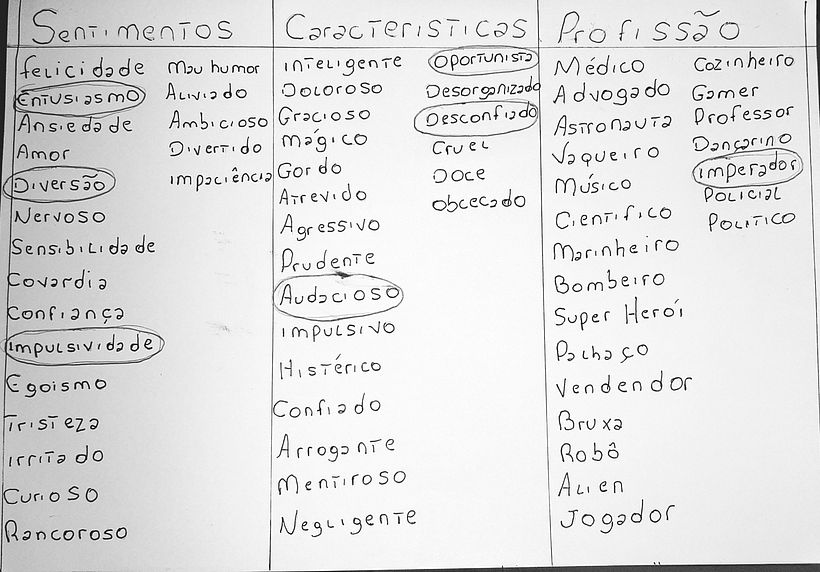 Sentimentos
felicidade
Entusiasmo
Ansiedade
Amor
Diversão
Nervoso
Sensibilidade
Covardia
Confiança
Impulsividade
Egoismo
Tristeza
irritado
Curioso
Rancoroso
Mau humor
Aliviado
Ambicioso
Divertido
impaciência
Caracteristicas
inteligente
Doloroso
Gracioso
mágico
Gordo
Atrevido
Agressivo
Prudente
Audacioso
impulsivo
Histérico
Confiado
Arrogante
Mentiroso
Negligente
Oportunista
Desorganizado
Desconfiado
Cruel
Doce
obcecado
Profissão
Médico
Advogado
Astronauta
Vaqueiro
Músico
Científico
Marinheiro
Bombeiro
Super Herói
Palhaço
Vendendor
Bruxa
Robô
Alien
Jogador
Cozinheiro
Gamer
Professor
Dançarino
imperador
Policial
Político